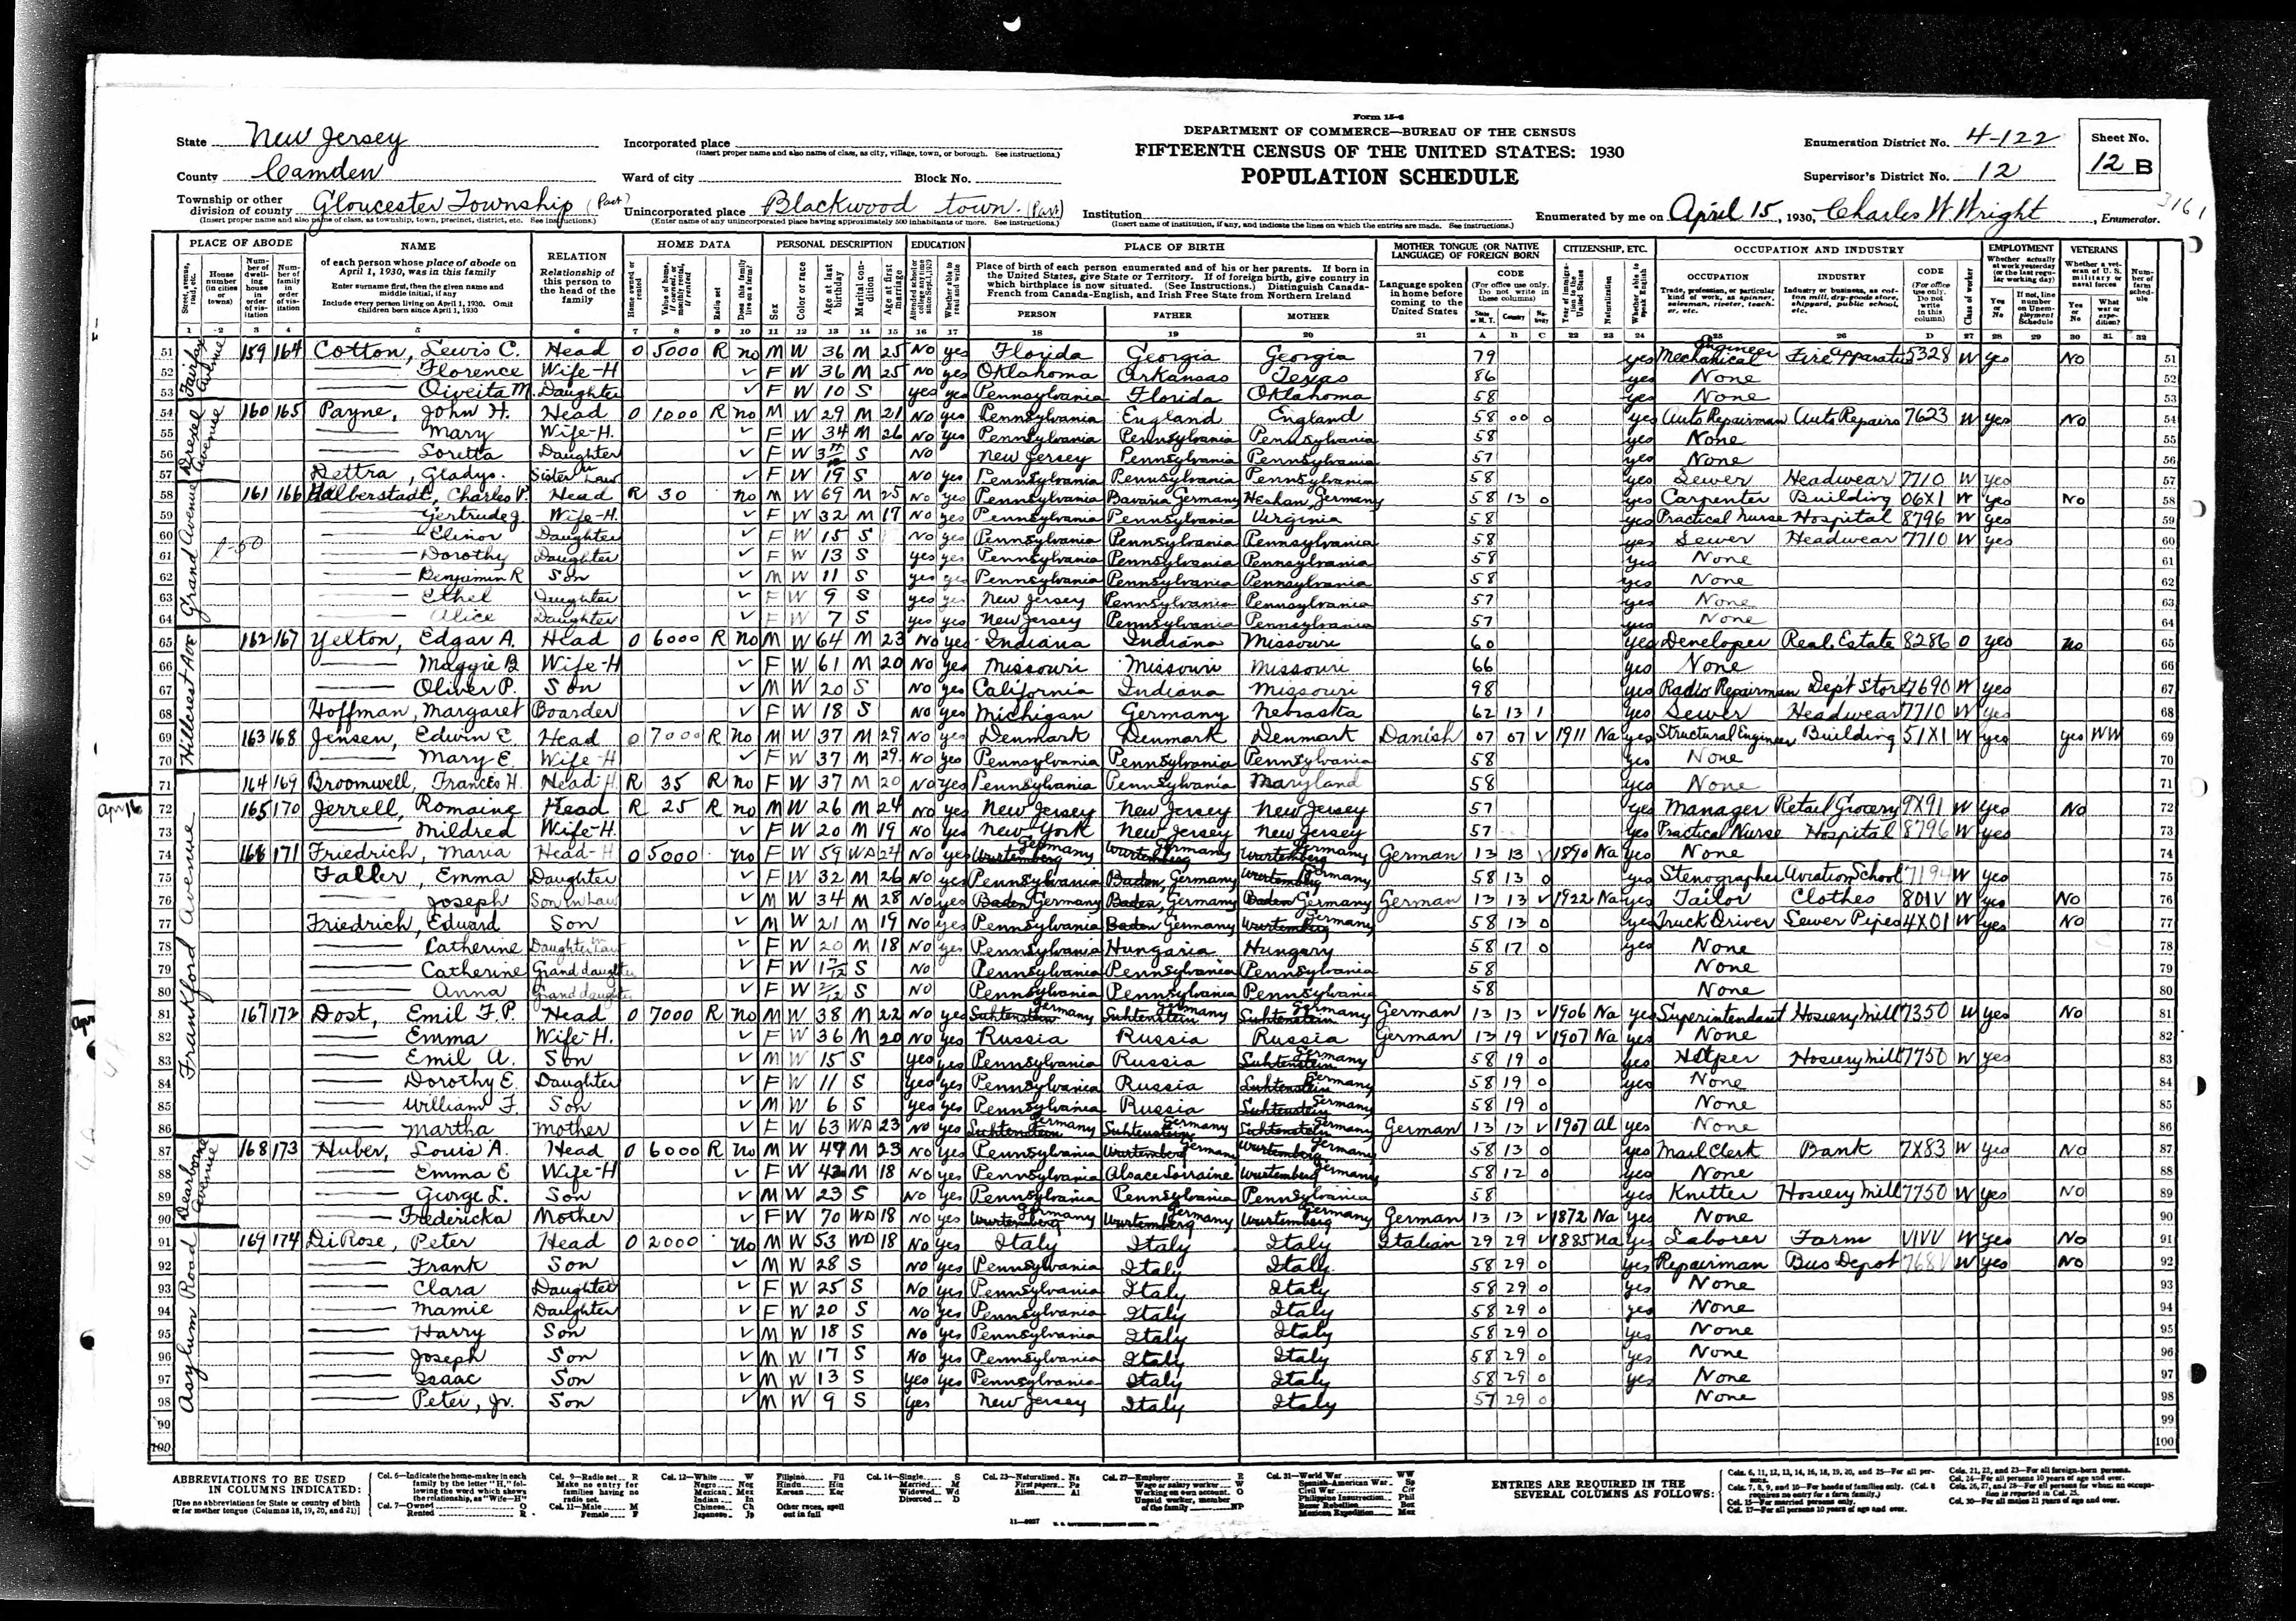 Form 15-6
DEPARTMENT OF COMMERCE—BUREAU OF THE CENSUS
FIFTEENTH CENSUS OF THE UNITED STATES: 1930
POPULATION SCHEDULE
State New Jersey
County Camden
Township or other division of county Gloucester Township (Part)
Incorporated place
(Insert proper name and also name of class, as city, village, town, or borough. See instructions.)
Ward of city Block No.
Unincorporated place Blackwood town (Part)
(Enter name of any unincorporated place having approximately 500 inhabitants or more. See instructions.)
Institution
(Insert name of institution, if any, and indicate the lines on which the entries are made. See instructions.)
Enumeration District No. 4-122
Supervisor's District No. 12
Sheet No. 12 B
Enumerated by me on April 15, 1930, Charles W. Wright, Enumerator.
PLACE OF ABODE NAME RELATION HOME DATA PERSONAL DESCRIPTION EDUCATION PLACE OF BIRTH MOTHER TONGUE (OR NATIVE LANGUAGE) OF FOREIGN BORN CITIZENSHIP, ETC. OCCUPATION AND INDUSTRY EMPLOYMENT VETERANS
of each person whose place of abode on April 1, 1930, was in this family
Enter surname first, then the given name and middle initial, if any
Include every person living on April 1, 1930. Omit children born since April 1, 1930
Relationship of this person to the head of the family
PERSON FATHER MOTHER
Fairfax Avenue
51 159 164 Cotton, Lewis C. Head O 5000 R No M W 36 M 25 No yes Florida Georgia Georgia 79 yes Mechanical Engineer Fire apparatus 5328 W yes No 51
52 Florence Wife-H F W 36 M 25 No yes Oklahoma Arkansas Texas 86 yes None 52
53 M. Daughter F W 10 S yes yes Pennsylvania Florida Oklahoma 58 yes None 53
Drexel Avenue
54 160 165 Payne, John H. Head O 1000 R No M W 29 M 21 No yes Pennsylvania England England 58 00 0 yes Auto Repairman Auto Repairs 7623 W yes No 54
55 Mary Wife-H. F W 34 M 26 No yes Pennsylvania Pennsylvania Pennsylvania 58 yes None 55
56 Loretta Daughter F W S No New Jersey Pennsylvania Pennsylvania 57 yes None 56
57 Dettra, Gladys. Sister in Law F W 19 S No yes Pennsylvania Pennsylvania Pennsylvania 58 yes Sewer Headwear 7710 W yes 57
Grand Avenue
58 161 166 Halberstadt, Charles P. Head R 30 No M W 69 M 25 No yes Pennsylvania Bavaria Germany Heshan, Germany 58 13 0 yes Carpenter Building 06X1 W yes No 58
59 Gertrude J. Wife-H. F W 32 M 17 No yes Pennsylvania Pennsylvania Virginia 58 yes Practical Nurse Hospital 8796 W yes 59
60 Elinor Daughter F W 15 S No yes Pennsylvania Pennsylvania Pennsylvania 58 yes Sewer Headwear 7710 W yes 60
61 Dorothy Daughter F W 13 S yes yes Pennsylvania Pennsylvania Pennsylvania 58 yes None 61
62 Benjamin R Son M W 11 S yes yes Pennsylvania Pennsylvania Pennsylvania 58 yes None 62
63 Ethel Daughter F W 9 S yes yes New Jersey Pennsylvania Pennsylvania 57 yes None 63
64 Alice Daughter F W 7 S yes yes New Jersey Pennsylvania Pennsylvania 57 yes None 64
Hillcrest Ave
65 162 167 Yelton, Edgar A. Head O 6000 R No M W 64 M 23 No yes Indiana Indiana Missouri 60 yes Developer Real Estate 8286 O yes no 65
66 Maggie B Wife-H F W 61 M 20 No yes Missouri Missouri Missouri 66 yes None 66
67 Oliver P. Son M W 20 S No yes California Indiana Missouri 98 yes Radio Repairman Dep't Store 7690 W yes 67
68 Hoffman, Margaret Boarder F W 18 S No yes Michigan Germany Nebraska 62 13 1 yes Sewer Headwear 7710 W yes 68
69 163 168 Jensen, Edwin E. Head O 7000 R No M W 37 M 29 No yes Denmark Denmark Denmark Danish 07 07 V 1911 Na yes Structural Engineer Building 51X1 W yes yes WW 69
70 Mary E. Wife-H F W 37 M 29 No yes Pennsylvania Pennsylvania Pennsylvania 58 yes None 70
Frankford Avenue
71 164 169 Broomwell, Frances H. Head-H R 35 R No F W 37 M 20 No yes Pennsylvania Pennsylvania Maryland 58 yes None 71
Apr 16
72 165 170 Jerrell, Romaine Head R 25 R No M W 26 M 24 No yes New Jersey New Jersey New Jersey 57 yes Manager Retail Grocery 9X91 W yes No 72
73 Mildred Wife-H. F W 20 M 19 No yes New York New Jersey New Jersey 57 yes Practical Nurse Hospital 8796 W yes 73
74 166 171 Friedrich, Maria Head-H O 5000 No F W 59 Wd 24 No yes Wurtemberg Germany Wurtemberg Germany Wurtemberg Germany German 13 13 V 1890 Na yes None 74
75 Faller, Emma Daughter F W 32 M 26 No yes Pennsylvania Baden, Germany Wurtemberg Germany 58 13 0 yes Stenographer Aviation School 7194 W yes 75
76 Joseph Son in Law M W 34 M 28 No yes Baden Germany Baden, Germany Baden Germany German 13 13 V 1922 Na yes Tailor Clothes 801V W yes No 76
77 Friedrich, Edward Son M W 21 M 19 No yes Pennsylvania Baden Germany Wurtemberg Germany 58 13 0 yes Truck Driver Sewer Pipes 4X01 W yes No 77
78 Catherine Daughter in law F W 20 M 18 No yes Pennsylvania Hungaria Hungary 58 17 0 yes None 78
79 Catherine Grand daughter F W S No Pennsylvania Pennsylvania Pennsylvania 58 None 79
80 Anna Grand daughter F W S No Pennsylvania Pennsylvania Pennsylvania 58 None 80
81 167 172 Dost, Emil F.P. Head O 7000 R No M W 38 M 22 No yes Germany Germany Germany German 13 13 V 1906 Na yes Superintendant Hosiery Mill 7350 W yes No 81
82 Emma Wife-H. F W 36 M 20 No yes Russia Russia Russia German 13 19 V 1907 Na yes None 82
83 Emil A. Son M W 15 S yes yes Pennsylvania Russia Germany 58 19 0 yes Helper Hosiery Mill 7750 W yes 83
84 Dorothy E. Daughter F W 11 S yes yes Pennsylvania Russia Germany 58 19 0 yes None 84
85 William F. Son M W 6 S yes yes Pennsylvania Russia Germany 58 19 0 None 85
86 Martha Mother F W 63 Wd 23 No yes Germany Germany Germany German 13 13 V 1907 Al yes None 86
Dearborne Avenue
87 168 173 Huber, Louis A. Head O 6000 R No M W 47 M 23 No yes Pennsylvania Wurtemberg Germany Wurtemberg Germany 58 13 0 yes Mail Clerk Bank 7X83 W yes No 87
88 Emma E Wife-H F W 42 M 18 No yes Pennsylvania Alsace Lorraine Wurtemberg Germany 58 12 0 yes None 88
89 George L. Son M W 23 S No yes Pennsylvania Pennsylvania Pennsylvania 58 yes Knitter Hosiery Mill 7750 W yes No 89
90 Fredericka Mother F W 70 Wd 18 No yes Wurtemberg Germany Wurtemberg Germany Wurtemberg Germany German 13 13 V 1872 Na yes None 90
Asylum Road
91 169 174 DiRose, Peter Head O 2000 No M W 53 Wd 18 No yes Italy Italy Italy Italian 29 29 V 1885 Na yes Laborer Farm VIVV W yes No 91
92 Frank Son M W 28 S No yes Pennsylvania Italy Italy 58 29 0 yes Repairman Bus Depot 768V W yes No 92
93 Clara Daughter F W 25 S No yes Pennsylvania Italy Italy 58 29 0 yes None 93
94 Mamie Daughter F W 20 S No yes Pennsylvania Italy Italy 58 29 0 yes None 94
95 Harry Son M W 18 S No yes Pennsylvania Italy Italy 58 29 0 yes None 95
96 Joseph Son M W 17 S No yes Pennsylvania Italy Italy 58 29 0 yes None 96
97 Isaac Son M W 13 S yes yes Pennsylvania Italy Italy 58 29 0 yes None 97
98 Peter, Jr. Son M W 9 S yes New Jersey Italy Italy 57 29 0 None 98
99 99
100 100
ABBREVIATIONS TO BE USED IN COLUMNS INDICATED:
[Use no abbreviations for State or country of birth or for mother tongue (Columns 18, 19, 20, and 21)]
ENTRIES ARE REQUIRED IN THE SEVERAL COLUMNS AS FOLLOWS: